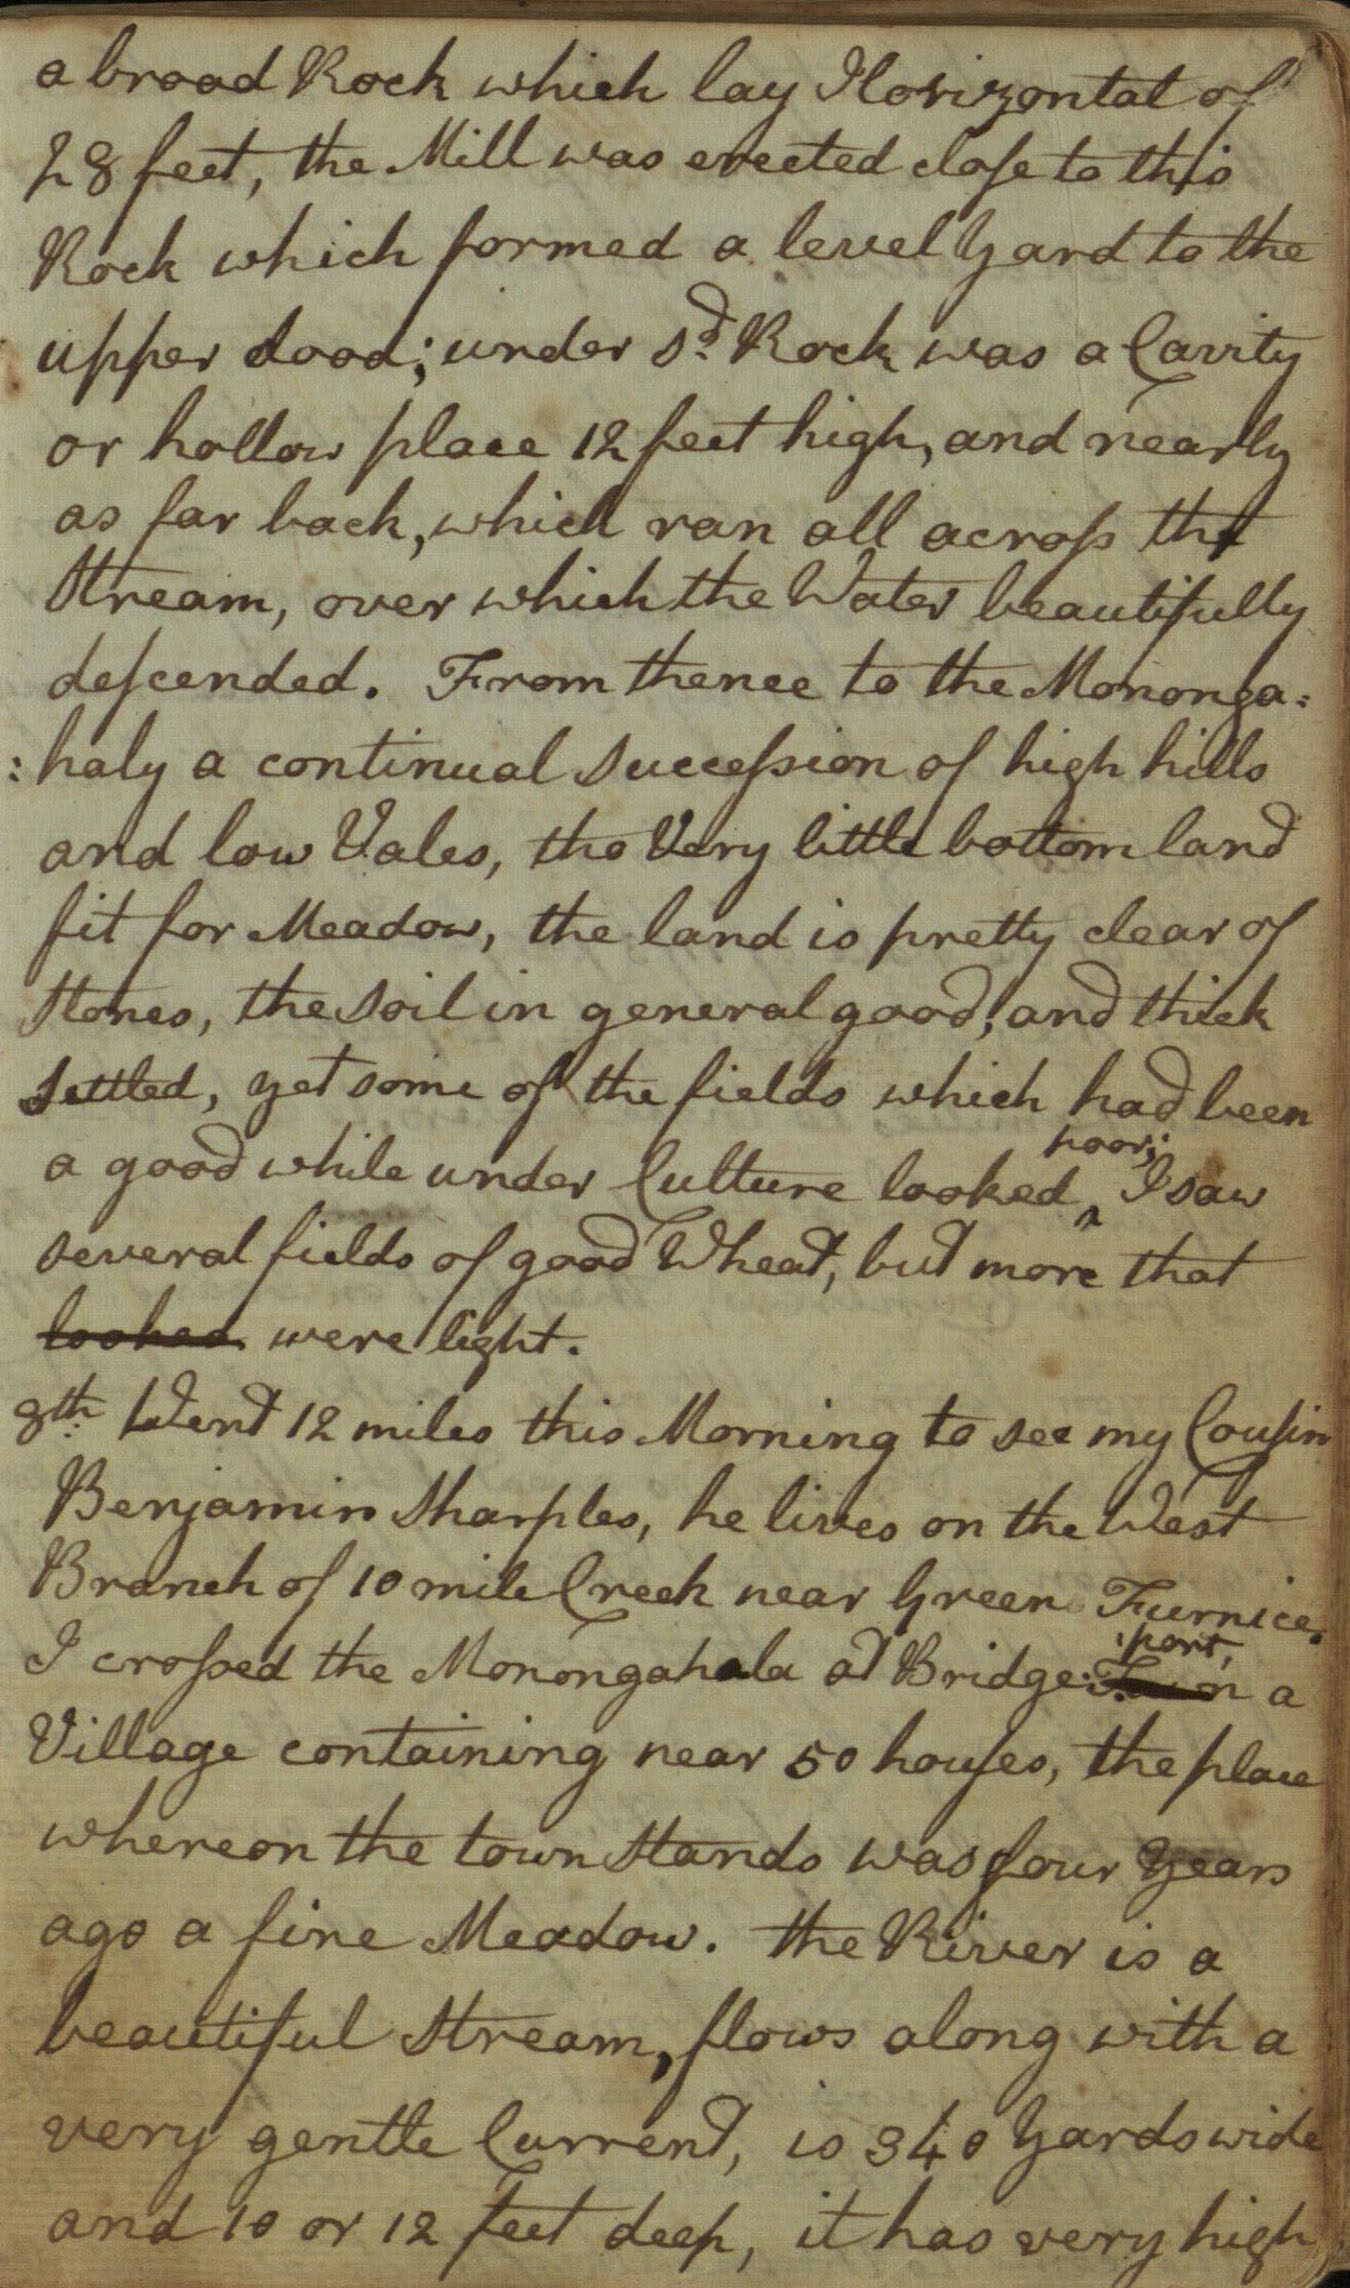 a broad Rock which lay Horizontal of
28 feet, the Mill was erected close to this
Rock which formed a level Yard to the
upper dood; under sd. Rock was a Cavity
or hollow place 12 feet high, and nearly
as far back, which ran all across the
Stream, over which the Water beautifully
descended. From thence to the Mononga:
:haly a continual succession of high hills
and low Vales, tho Very little bottom land
fit for Meadow, the land is pretty clear of
Stones, the soil in general good, and thick
settled, yet some of the fields which had been
a good while under Culture looked poor; I saw
several fields of good Wheat, but more that
looked were light.
8th. Went 12 miles this Morning to see my Cousin
Benjamin Sharples, he lives on the West
Branch of 10 mile Creek near Green Furnice.
I crossed the Monongahala at Bridge:port, a
Village containing near 50 houses, the place
whereon the town Stands was four Years
ago a fine Meadow. the River is a
beautiful Stream, flows along with a
very gentle Current, is 340 Yards wide
and 10 or 12 feet deep, it has very high